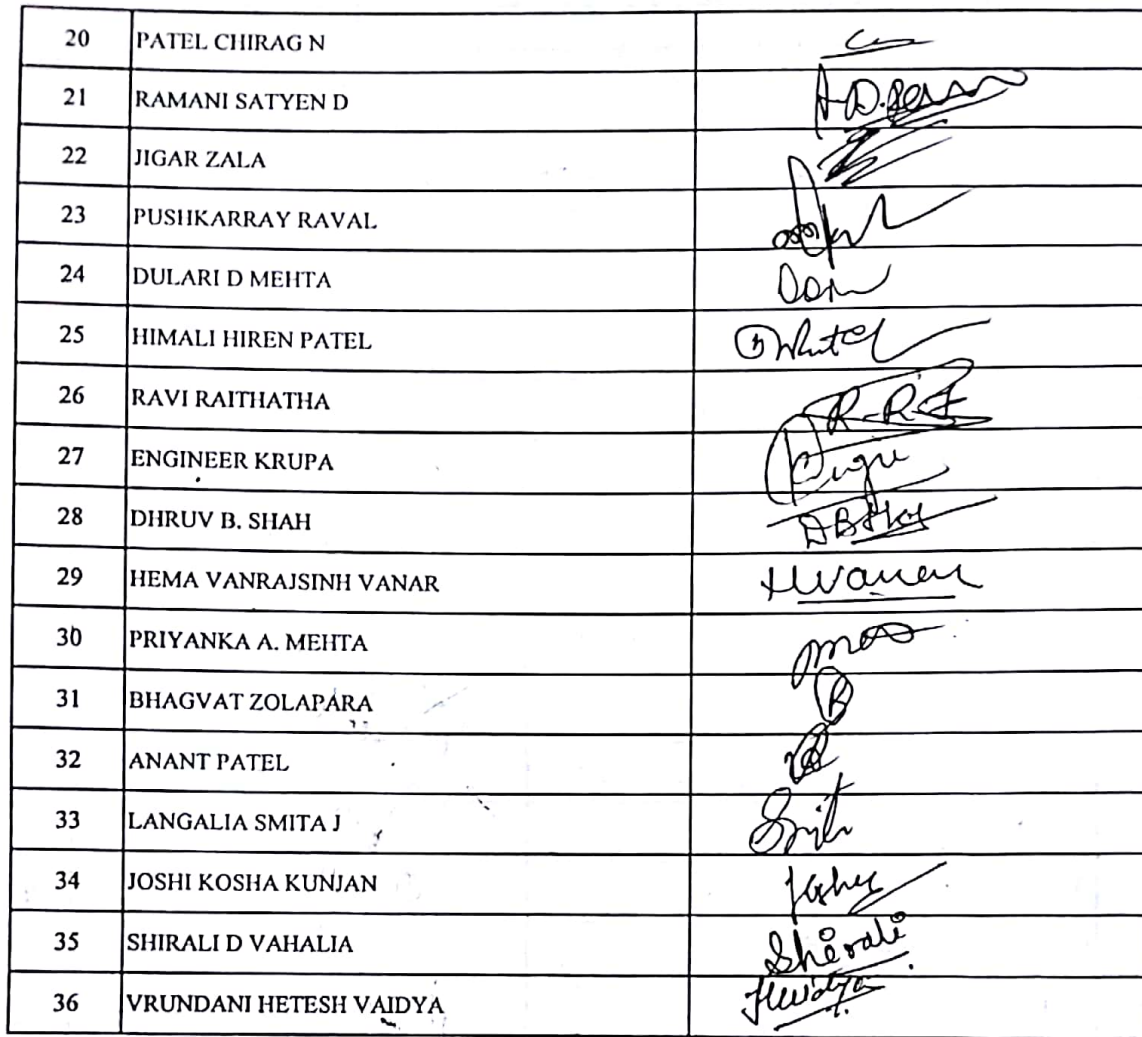 20 PATEL CHIRAG N
21 RAMANI SATYEN D
22 JIGAR ZALA
23 PUSHKARRAY RAVAL
24 DULARI D MEHTA
25 HIMALI HIREN PATEL
26 RAVI RAITHATHA
27 ENGINEER KRUPA
28 DHRUV B. SHAH
29 HEMA VANRAJSINH VANAR
30 PRIYANKA A. MEHTA
31 BHAGVAT ZOLAPARA
32 ANANT PATEL
33 LANGALIA SMITA J
34 JOSHI KOSHA KUNJAN
35 SHIRALI D VAHALIA Shirali
36 VRUNDANI HETESH VAIDYA